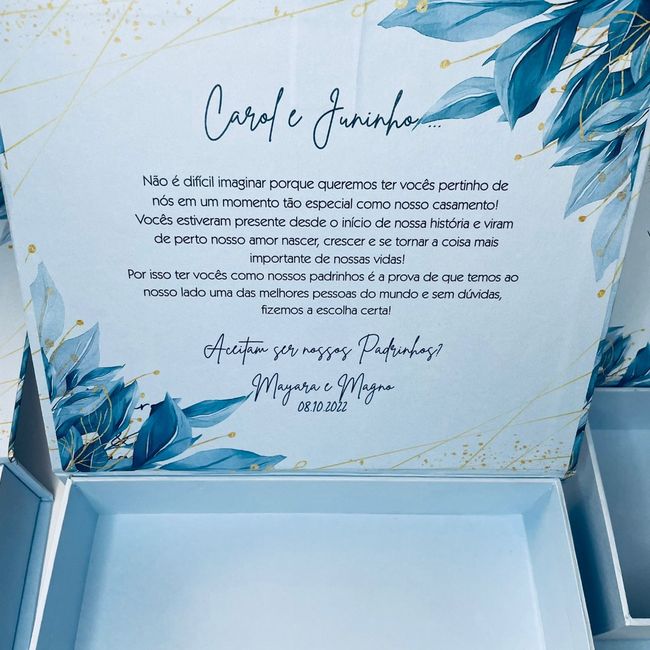 Carol e Juninho...
Não é difícil imaginar porque queremos ter vocês pertinho de
nós em um momento tão especial como nosso casamento!
Vocês estiveram presente desde o início de nossa história e viram
de perto nosso amor nascer, crescer e se tornar a coisa mais
importante de nossas vidas!
Por isso ter vocês como nossos padrinhos é a prova de que temos ao
nosso lado uma das melhores pessoas do mundo e sem dúvidas,
fizemos a escolha certa!
Aceitam ser nossos Padrinhos?
Mayara e Magno
08.10.2022